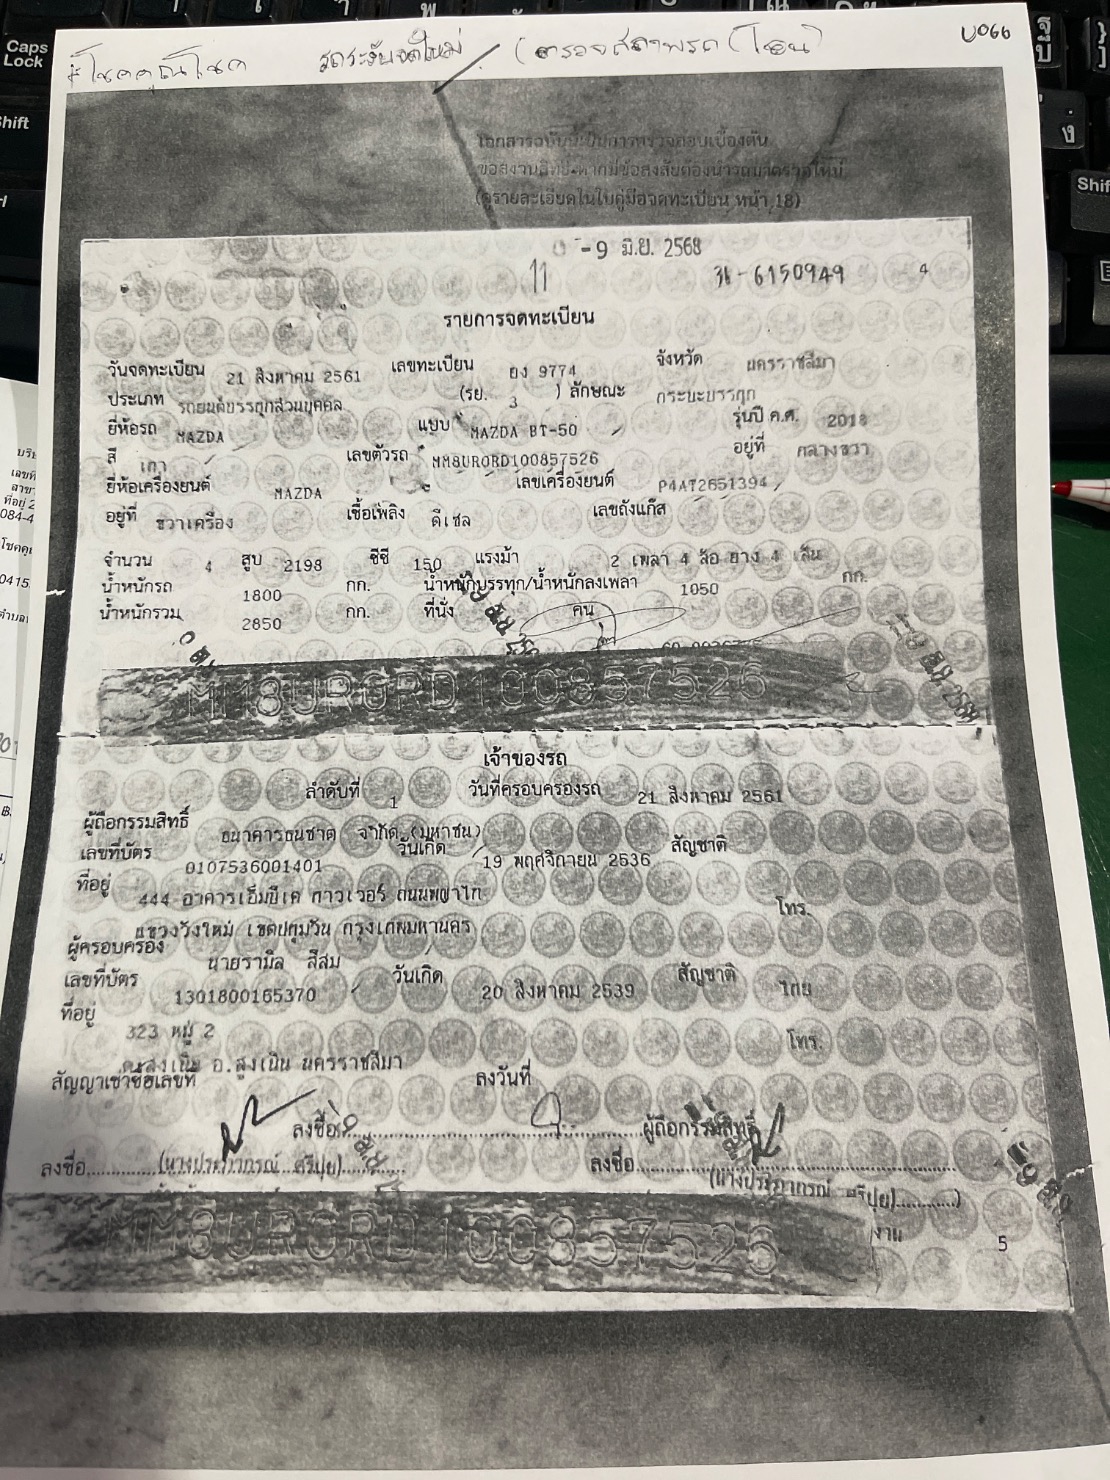 #โชคคูณโชค รถระงับจดใหม่ / (ตรวจสภาพรถ (โอน) U066
เอกสารฉบับนี้เป็นการตรวจสอบเบื้องต้น
ขอสงวนสิทธิ์หากมีข้อสงสัยต้องนำรถมาตรวจใหม่
(ดูรายละเอียดในใบคู่มือจดทะเบียน หน้า 18)
-9 มิ.ย. 2568
11 31-6150949 4
รายการจดทะเบียน
วันจดทะเบียน 21 สิงหาคม 2561 เลขทะเบียน ยง 9774 จังหวัด นครราชสีมา
ประเภท รถยนต์บรรทุกส่วนบุคคล (รย. 3 ) ลักษณะ กระบะบรรทุก
ยี่ห้อรถ MAZDA แบบ MAZDA BT-50 รุ่นปี ค.ศ. 2018
สี เทา เลขตัวรถ MM8URORD100857526 อยู่ที่ กลางขวา
ยี่ห้อเครื่องยนต์ MAZDA เลขเครื่องยนต์ P4AT2651394
อยู่ที่ ขวาเครื่อง เชื้อเพลิง ดีเซล เลขถังแก๊ส
จำนวน 4 สูบ 2198 ซีซี 150 แรงม้า 2 เพลา 4 ล้อ ยาง 4 เส้น
น้ำหนักรถ 1800 กก. น้ำหนักบรรทุก/น้ำหนักลงเพลา 1050 กก.
น้ำหนักรวม 2850 กก. ที่นั่ง คน
MM8URORD100857526
เจ้าของรถ
ลำดับที่ 1 วันที่ครอบครองรถ 21 สิงหาคม 2561
ผู้ถือกรรมสิทธิ์ ธนาคารธนชาต จำกัด (มหาชน)
เลขที่บัตร 0107536001401 วันเกิด 19 พฤศจิกายน 2536 สัญชาติ
ที่อยู่ 444 อาคารเอ็มบีเค ทาวเวอร์ ถนนพญาไท
แขวงวังใหม่ เขตปทุมวัน กรุงเทพมหานคร โทร.
ผู้ครอบครอง นายรามิล สีสม
เลขที่บัตร 1301800165370 วันเกิด 20 สิงหาคม 2539 สัญชาติ ไทย
ที่อยู่ 323 หมู่ 2 โทร.
ต.สูงเนิน อ.สูงเนิน นครราชสีมา
สัญญาเช่าซื้อเลขที่ ลงวันที่
ลงชื่อ ผู้ถือกรรมสิทธิ์
ลงชื่อ (นางประภากรณ์ ศรีปุย) ลงชื่อ (นางประภากรณ์ ศรีปุย)
5
MM8URORD100857526